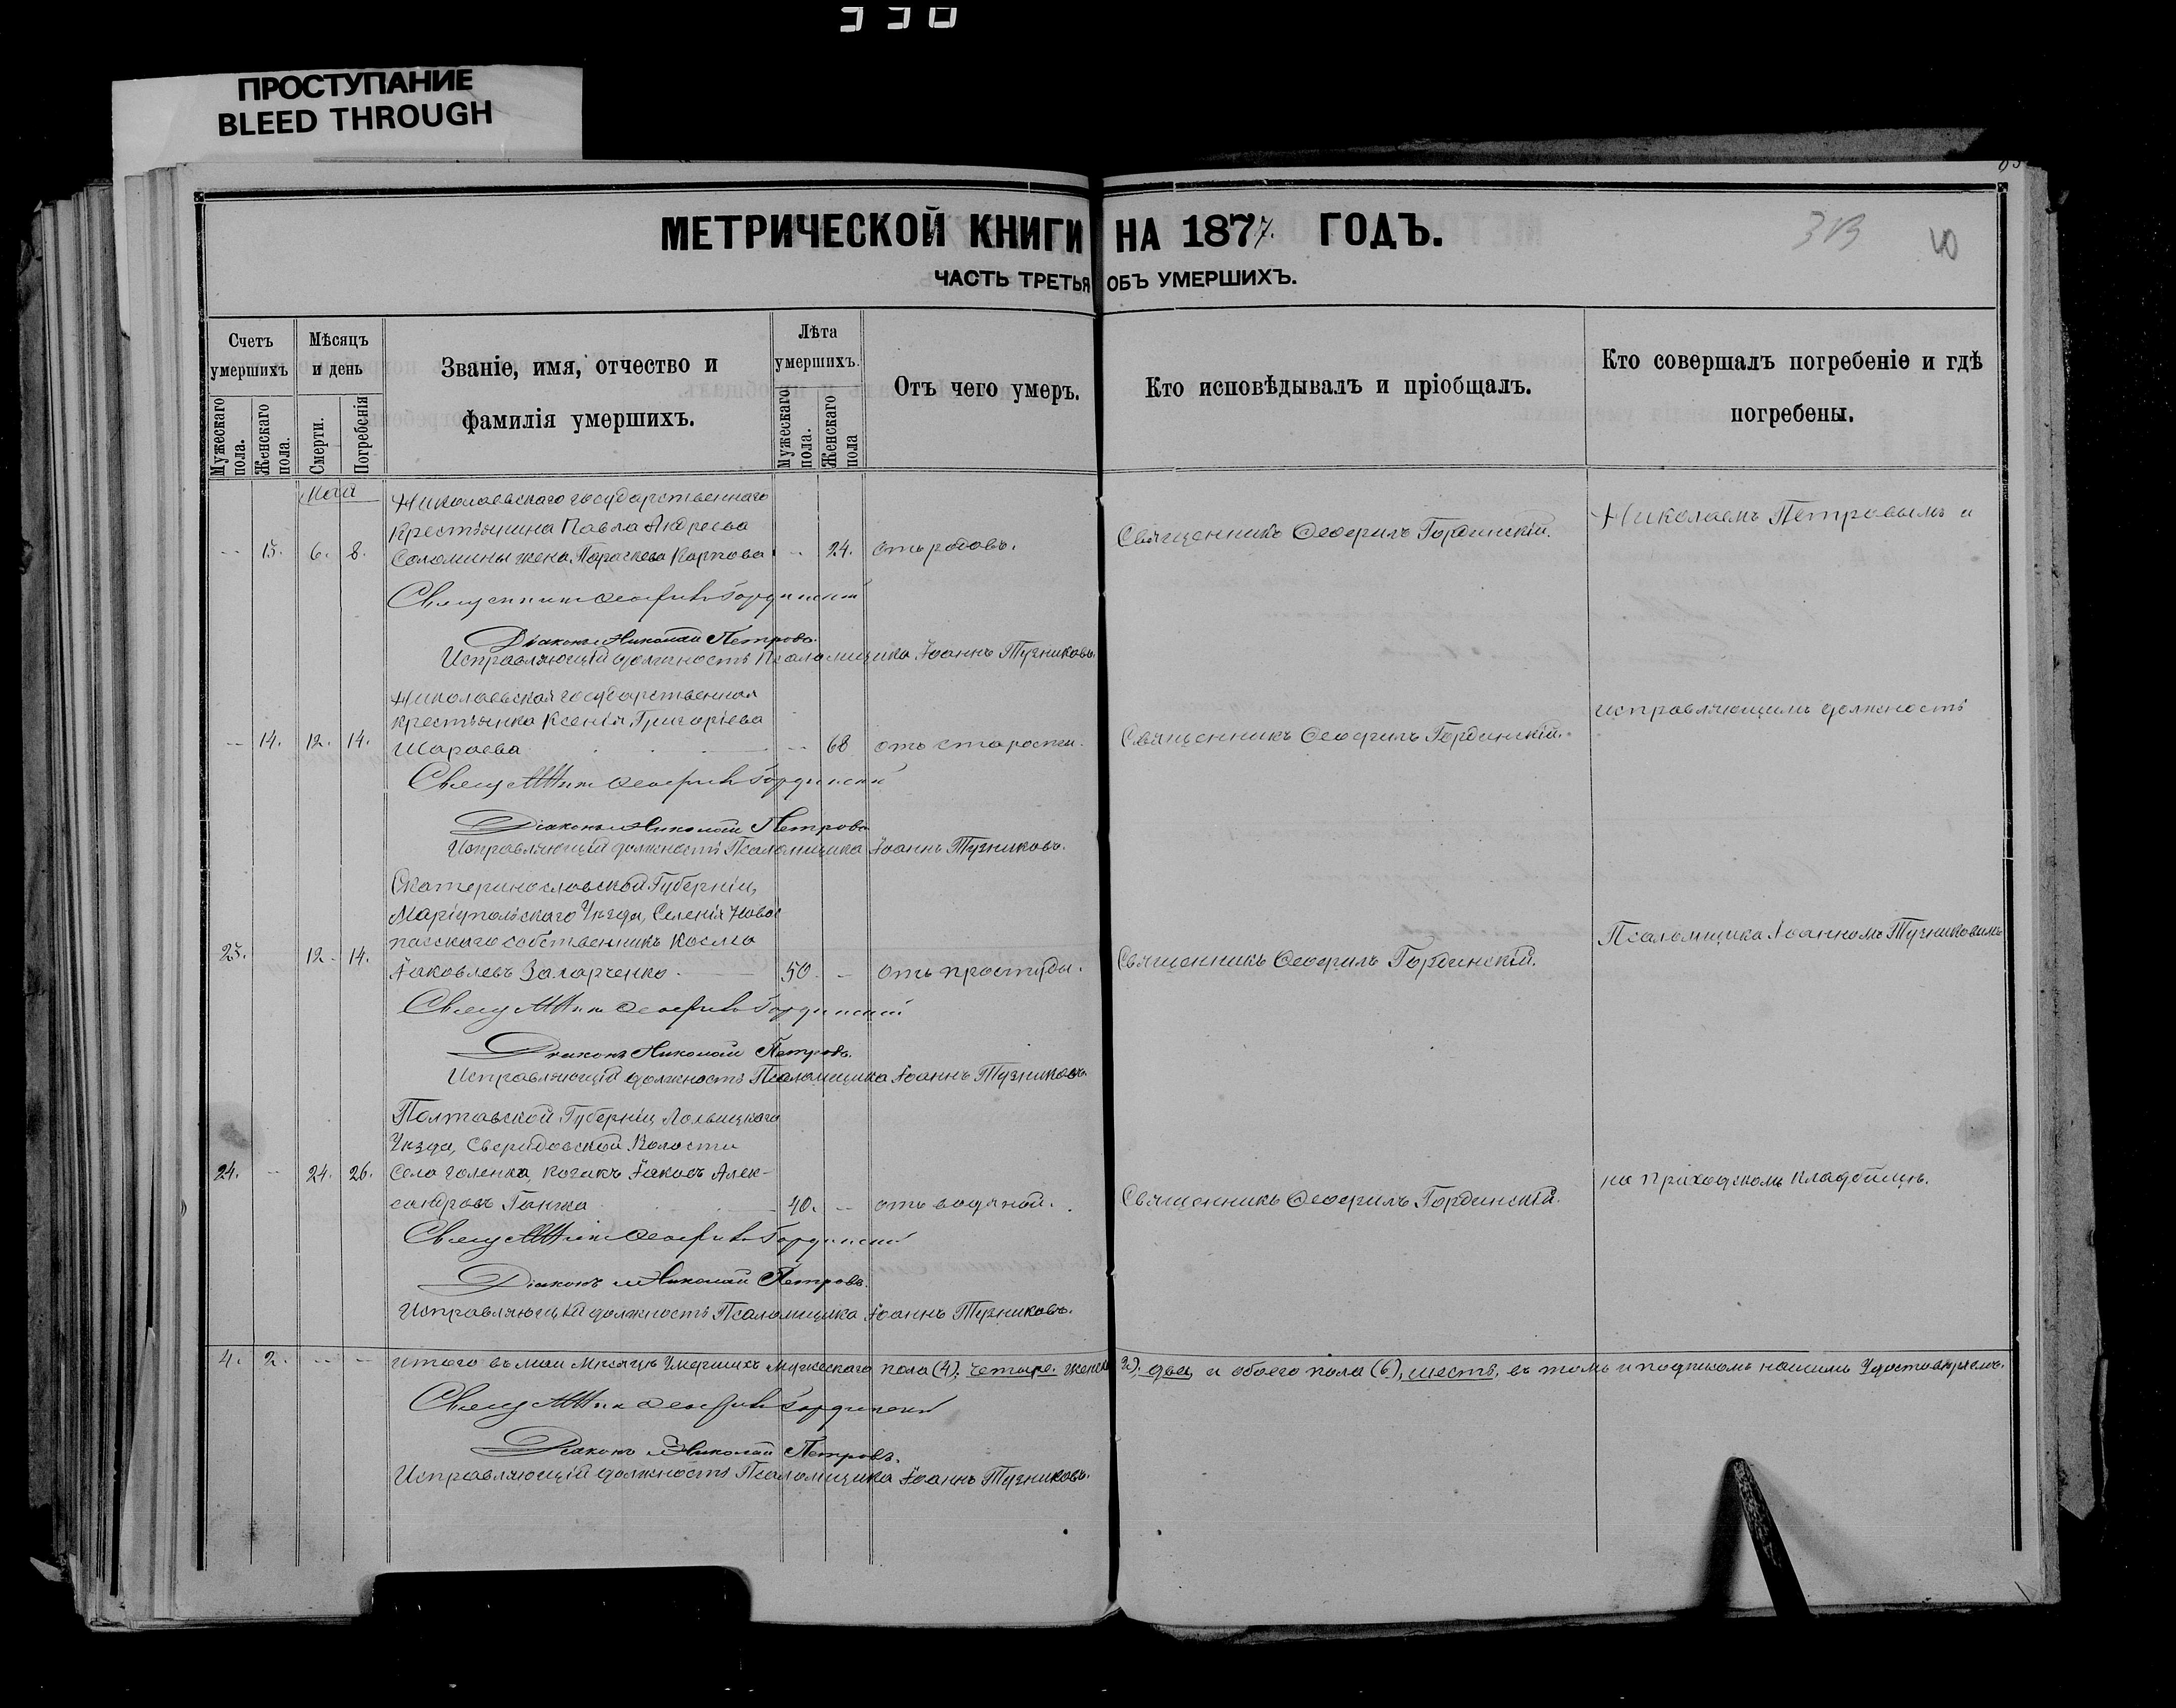 330
ПРОСТУПАНИЕ
BLEED THROUGH
МЕТРИЧЕСКОЙ КНИГИ НА 1877. ГОДЪ.
ЧАСТЬ ТРЕТЬЯ ОБЪ УМЕРШИХЪ.
Счетъ умершихъ
Мужескаго пола.
Женскаго пола.
Мѣсяцъ и день
Смерти.
Погребенія
Званіе, имя, отчество и фамилія умершихъ.
Лѣта умершихъ.
Мужескаго пола.
Женскаго пола
Отъ чего умеръ.
Кто исповѣдывалъ и пріобщалъ.
Кто совершалъ погребеніе и гдѣ погребены.
Мая
Николаевскаго государственнаго
Крестьянина Павла Андреева
-- 13. 6. 8. Соломины жена Параскева Карпова -- 24. отъ родовъ. Священникъ Ѳеофилъ Гординскій. Николаемъ Петровымъ и
Священникъ Ѳеофилъ Гординскій
Діаконъ Николай Петровъ.
Исправляющій должность Псаломщика Іоаннъ Тузниковъ.
Николаевская государственная
крестьянка Ксенія Григоріева исправляющимъ должность
-- 14. 12. 14. Шараева -- 68 отъ старости. Священникъ Ѳеофилъ Гординскій.
Священникъ Ѳеофилъ Гординскій
Діаконъ Николай Петровъ
Исправляющій должность Псаломщика Іоаннъ Тузниковъ.
Екатеринославской Губерніи,
Маріупольскаго Уѣзда, Селенія Новос
23. 12. 14. пасскаго собственникъ Косма Псаломщика Іоанномъ Тузниковымъ
Іаковлевъ Захарченко 50. -- отъ простуды. Священникъ Ѳеофилъ Гординскій.
Священникъ Ѳеофилъ Гординскій
Діаконъ Николай Петровъ.
Исправляющій должность Псаломщика Іоаннъ Тузниковъ.
Полтавской Губерніи Лохвицкаго
Уѣзда, Свиридовской Волости
24. -- 24. 26. Села Голенка, козакъ Іаковъ Алек- на приходскомъ кладбищѣ.
сандровъ Ганжа 40. -- отъ водяной. Священникъ Ѳеофилъ Гординскій.
Священникъ Ѳеофилъ Гординскій
Діаконъ Николай Петровъ.
Исправляющій должность Псаломщика Іоаннъ Тузниковъ.
4. 2. -- -- итого въ маи мѣсяцѣ Умершихъ мужескаго пола (4), четыре. женск 2), два, а обоего пола (6), шесть, въ томъ и подписомъ нашимъ Удостовѣряемъ.
Священникъ Ѳеофилъ Гординскій
Діаконъ Николай Петровъ.
Исправляющій должность Псаломщика Іоаннъ Тузниковъ.